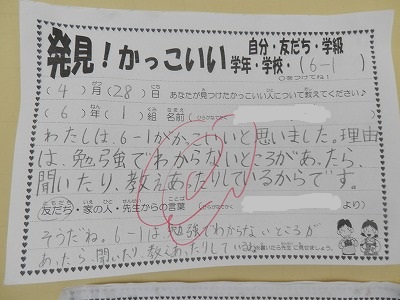 発見！かっこいい 自分・友だち・学級
学年・学校・(6-1)
○をつけてね！
(4)月(28)日 あなたが見つけたかっこいい人について教えてください♪
(6)年(1)組 名前
わたしは、6-1がかこいいと思いました。理由
は、勉強でわからないところがあったら、
聞いたり、教えあったりしているからです。
友だち・家の人・先生からの言葉
より)
そうだね。6-1は、勉強でわからないところが
あったら 聞いたり 教えあったりして